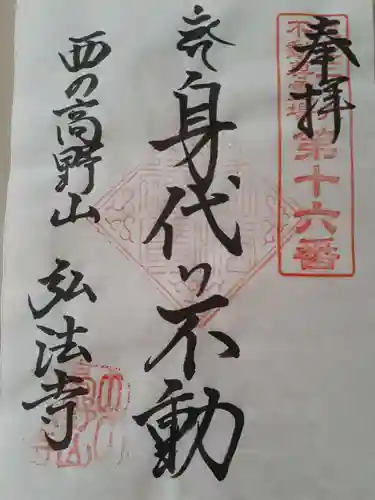 奉拝
不動尊霊場
第十六番
身代り不動
西の高野山 弘法寺